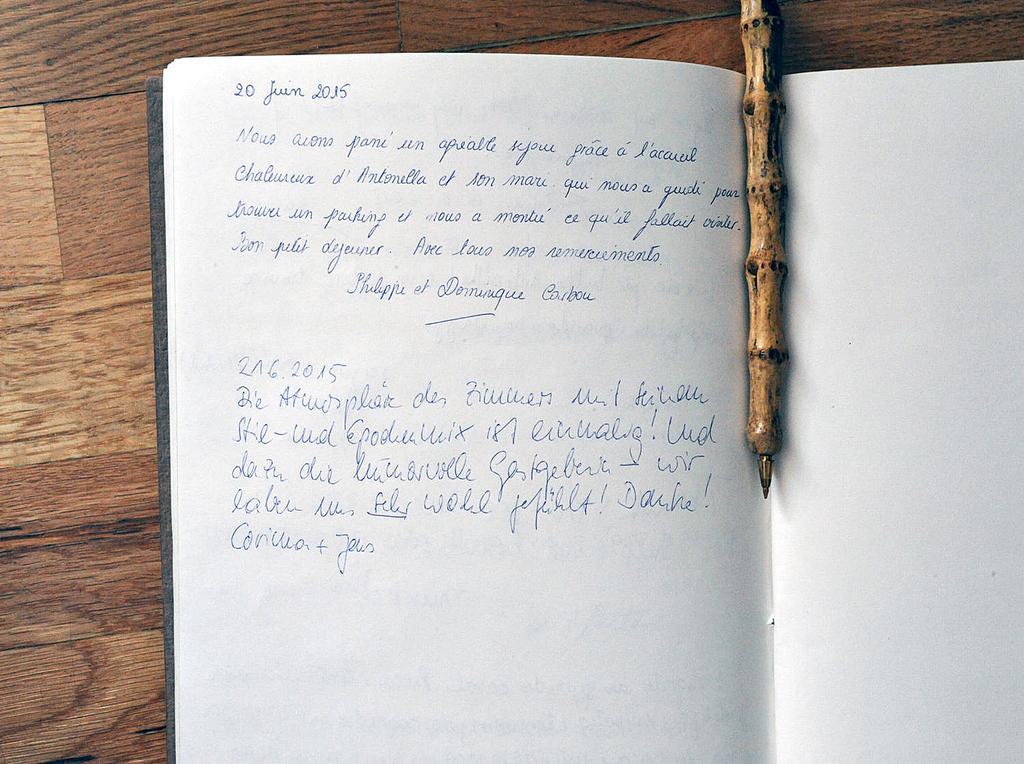 20 Juin 2015
Nous avons passé un agréable séjour grâce à l'accueil
Chaleureux d'Antonella et son mari qui nous a guidé pour
trouver un parking et nous a montré ce qu'il fallait visiter.
Bon petit déjeuner. Avec tous nos remerciements.
Philippe et Dominique Carbou
21.6.2015
Die Atmosphäre des Zimmers mit seinem
Stil- und Epochenmix ist einmalig! Und
dazu die humorvolle Gastgeberin – wir
haben uns sehr wohl gefühlt! Danke!
Corinna + Jens